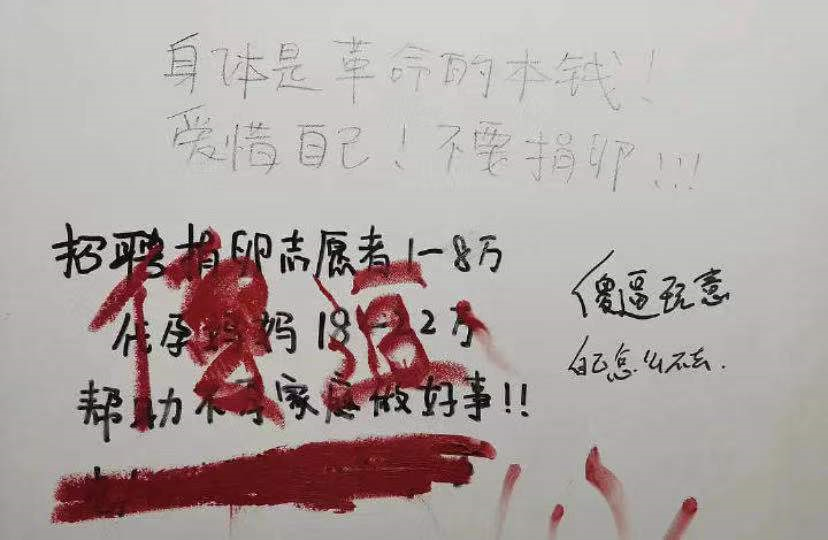 身体是革命的本钱！
爱惜自己！不要捐卵！!!
招聘捐卵志愿者1-8万
代孕妈妈18-22万
帮助不孕家庭做好事!!
傻逼
傻逼玩意
自己怎么不去.